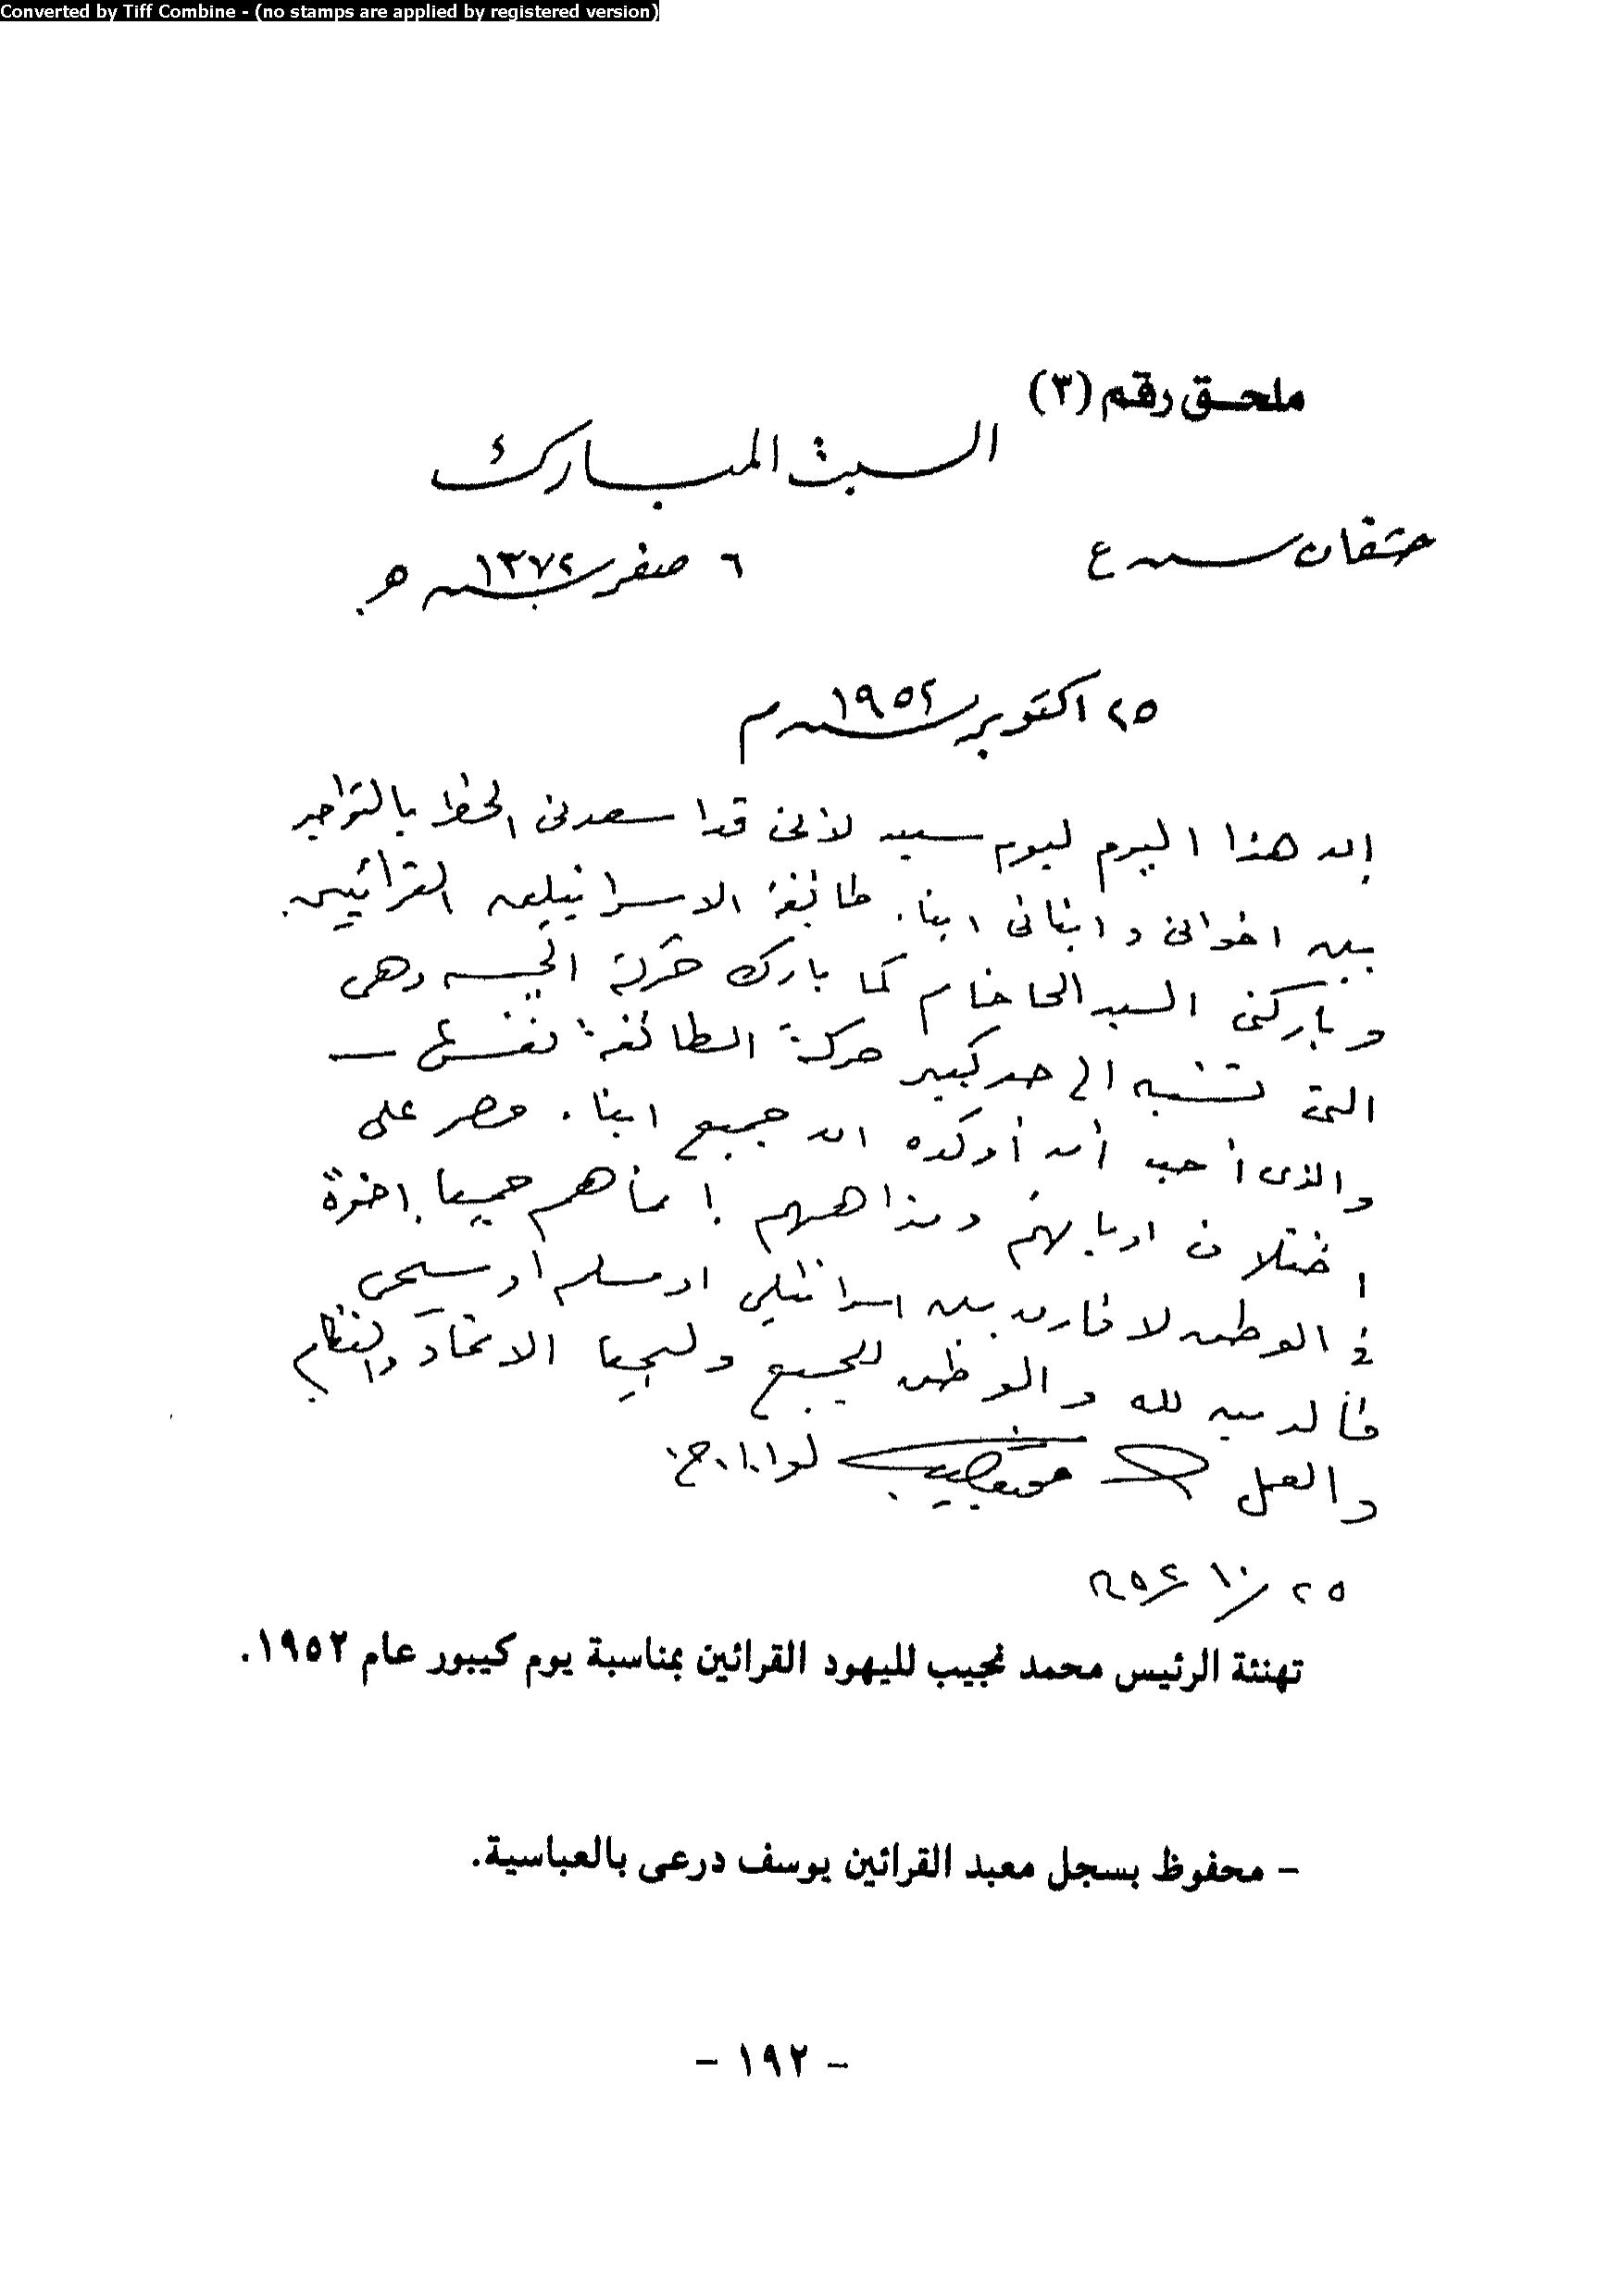 Converted by Tiff Combine - (no stamps are applied by registered version)
ملحق رقم (٣)
السبت المبارك
حشفان سنة ع
٦ صفر سنة ١٣٧٢ هـ.
٢٥ اكتوبر سنة ١٩٥٢ م
إن هذا اليوم ليوم سعيد لأننى قد اسعدنى الحظ بالتواجد
بين اخوانى وابنائى ابناء طائفة الاسرائيليين القرائيين
وباركنى السيد الحاخام كما بارك حركة الجيش وهى
التى تشبه الى حد كبير حركة الطائفة نفسها —
والذى أحب أن أؤكده ان جميع ابناء مصر على
اختلاف اديانهم ومذاهبهم إنما هم جميعا إخوة
فى الوطن لا فارق بين اسرائيلى او مسلم او مسيحى
فالدين لله والوطن للجميع وليحيا الاتحاد والنظام
والعمل محمد نجيب لواء ا. ح.
٢٥/١٠/٩٥٢
تهنئة الرئيس محمد نجيب لليهود القرائين بمناسبة يوم كيبور عام ١٩٥٢.
- محفوظ بسجل معبد القرائين يوسف درعى بالعباسية.
- ١٩٢ -